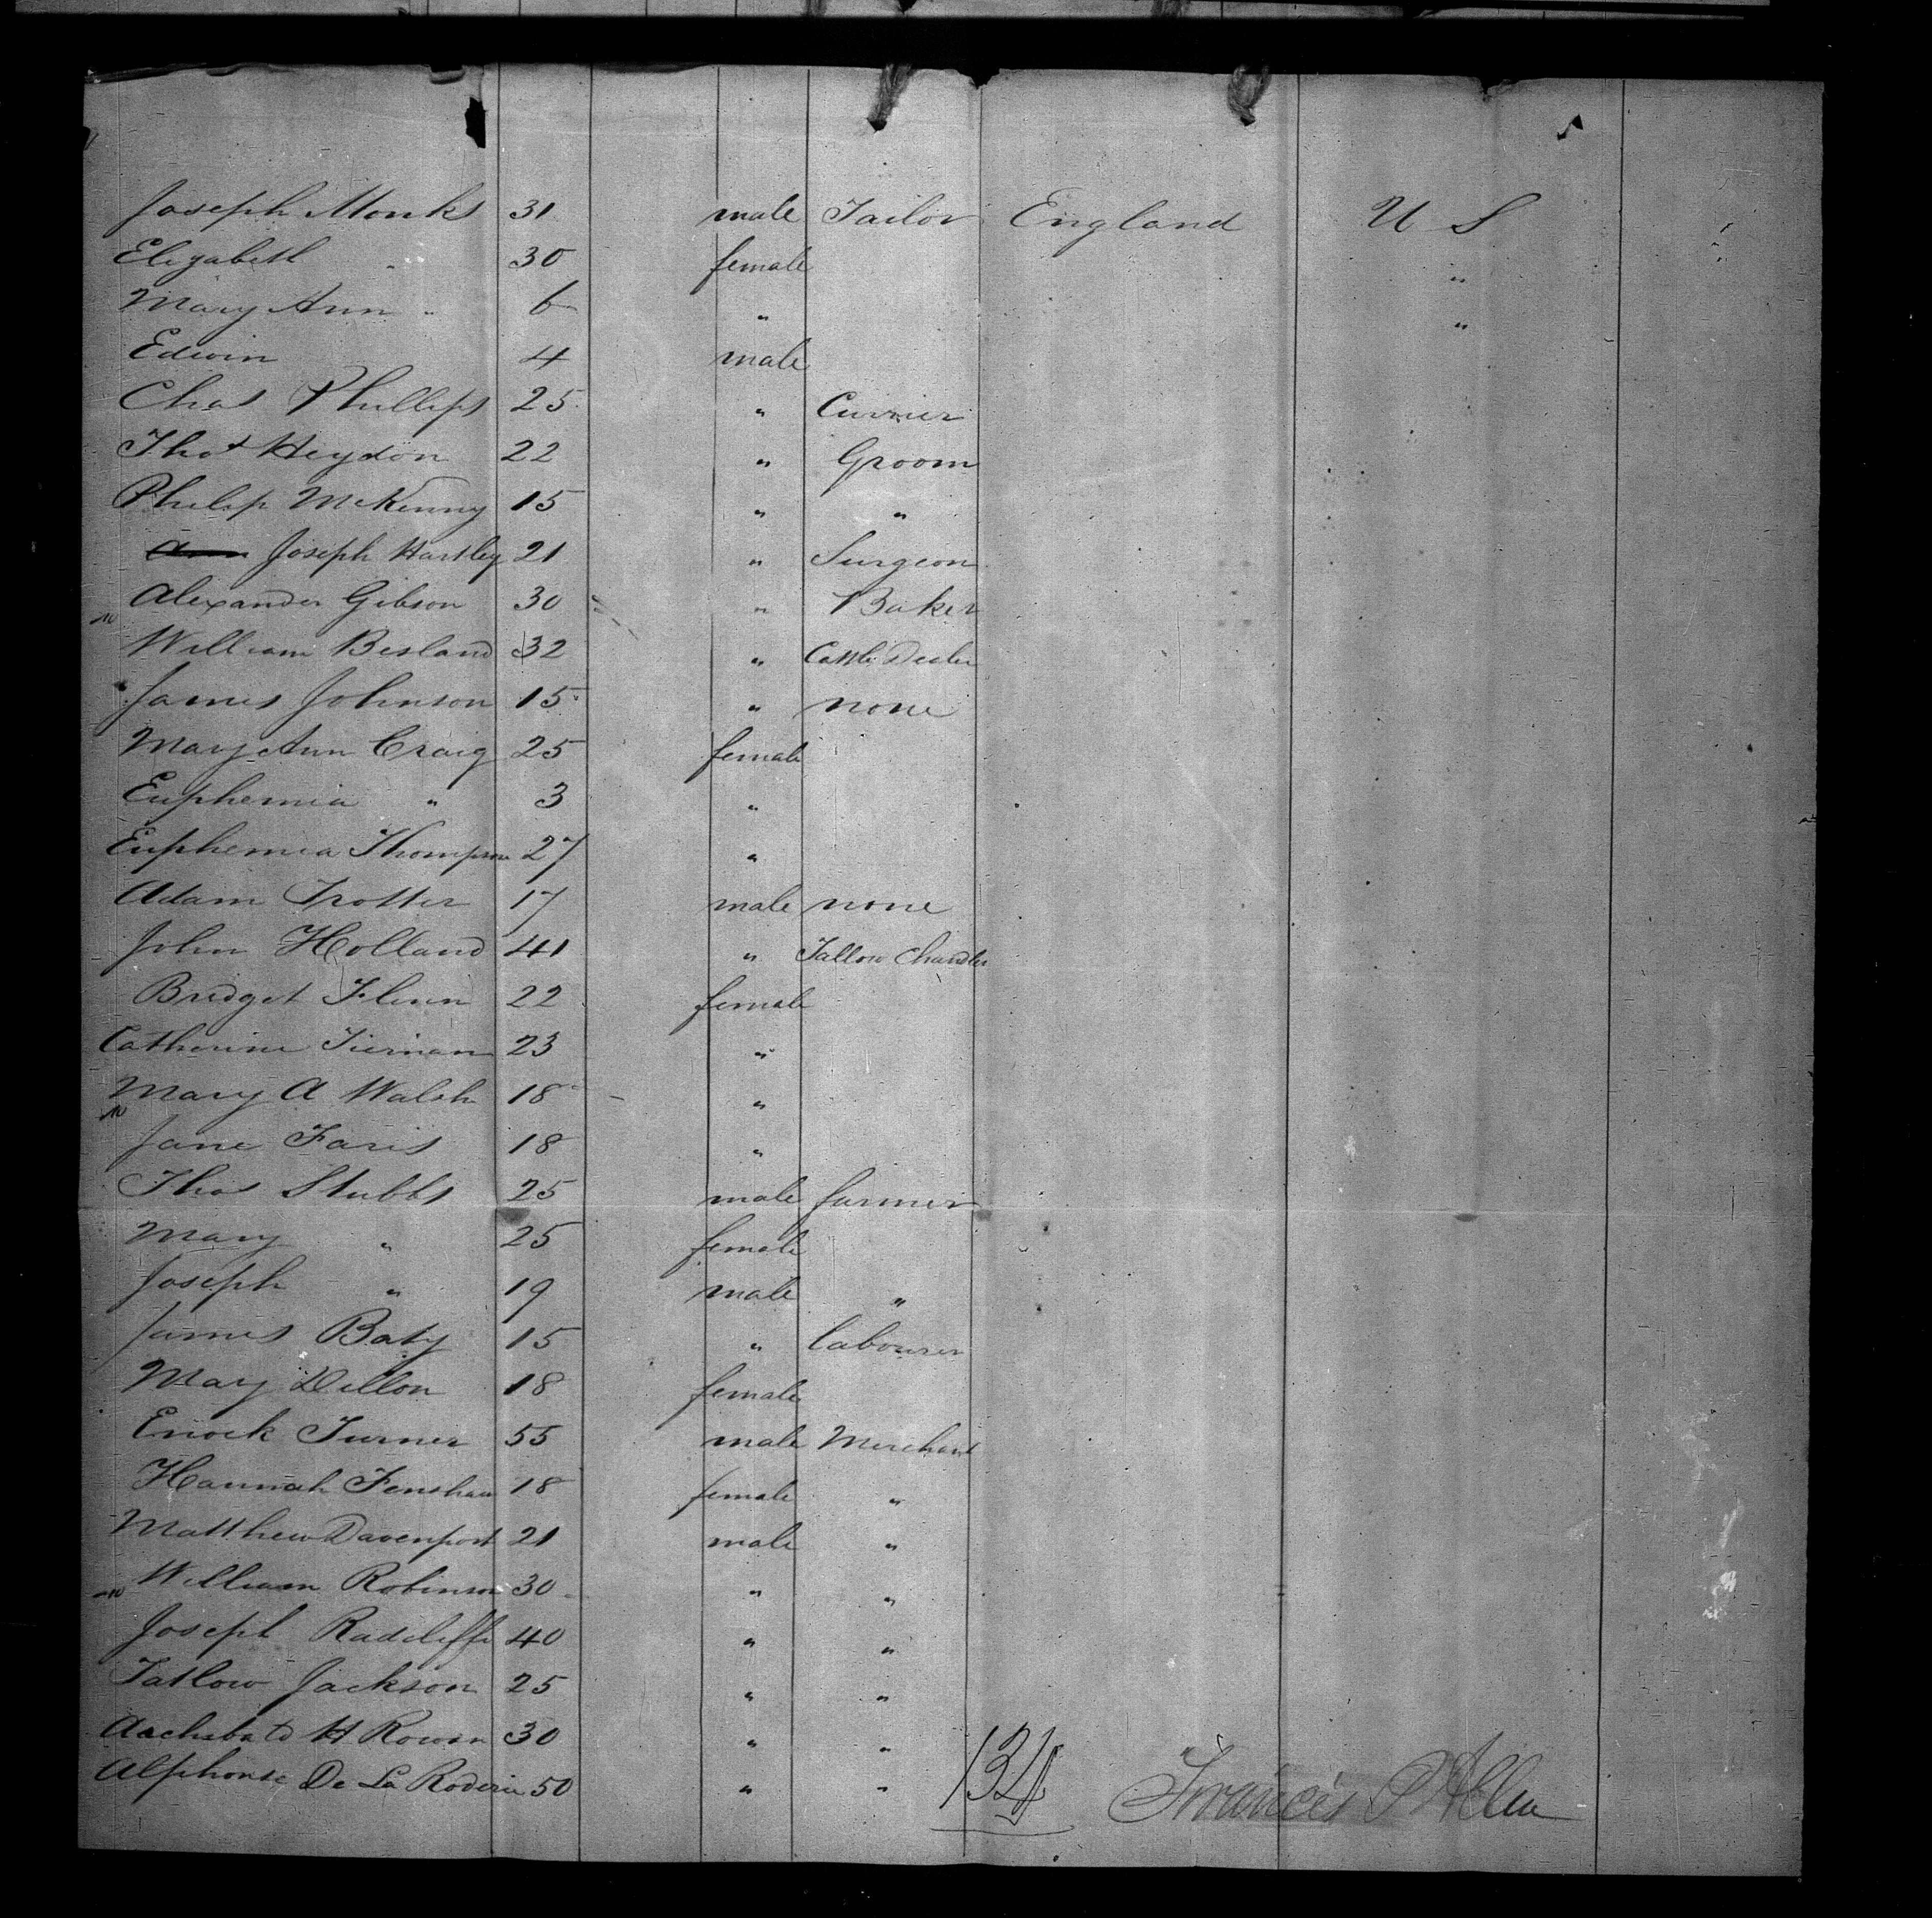 Joseph Monks 31 male Tailor England U S
Elizabeth " 30 female "
Mary Ann " 6 " "
Edwin 4 male
Chas Phillips 25 " Currier
Thos Heydon 22 " Groom
Philip McKenny 15 " "
Joseph Hartley 21 " Surgeon
Alexander Gibson 30 " Baker
William Besland 32 " Cattle Dealer
James Johnson 15 " none
Mary Ann Craig 25 female
Euphemia " 3 "
Euphemia Thompson 27 "
Adam Trotter 17 male none
John Holland 41 " Tallow Chandler
Bridget Flinn 22 female
Catherine Tiernan 23 "
Mary A Walsh 18 "
Jane Faris 18 "
Thos Stubbs 25 male farmer
Mary " 25 female
Joseph " 19 male "
James Baty 15 " labourer
Mary Dillon 18 female
Enock Turner 55 male Merchant
Hannah Fenshaw 18 female "
Matthew Davenport 21 male "
William Robinson 30 " "
Joseph Radcliffe 40 " "
Tatlow Jackson 25 " "
Archibald H Rowan 30 " "
Alphonse De La Roderie 50 " "
134 Francis P Allen